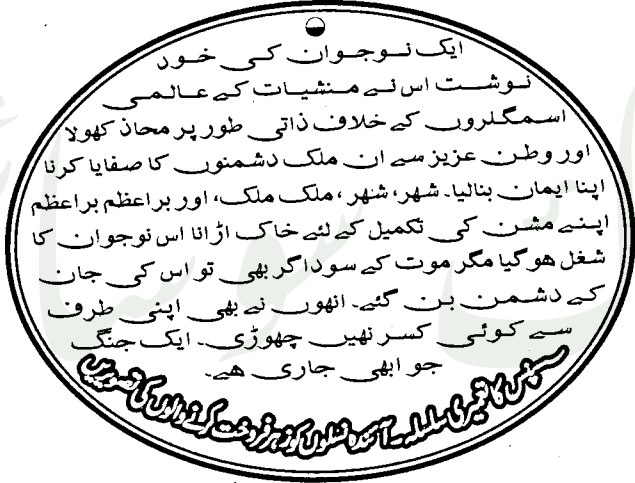 ایک نوجوان کی خود
نوشت اس نے منشیات کے عالمی
اسمگلروں کے خلاف ذاتی طور پر محاذ کھولا
اور وطن عزیز سے ان ملک دشمنوں کا صفایا کرنا
اپنا ایمان بنالیا۔ شہر، شہر، ملک ملک، اور براعظم براعظم
اپنے مشن کی تکمیل کے لئے خاک اڑانا اس نوجوان کا
شغل ھوگیا مگر موت کے سوداگر بھی تو اس کی جان
کے دشمن بن گئے۔ انھوں نے بھی اپنی طرف
سے کوئی کسر نھیں چھوڑی۔ ایک جنگ
جو ابھی جاری ھے۔
سسپنس کا تعمیری سلسلہ۔ آئندہ نسلوں کو زہر فروخت کرنے والوں کی تصویریں